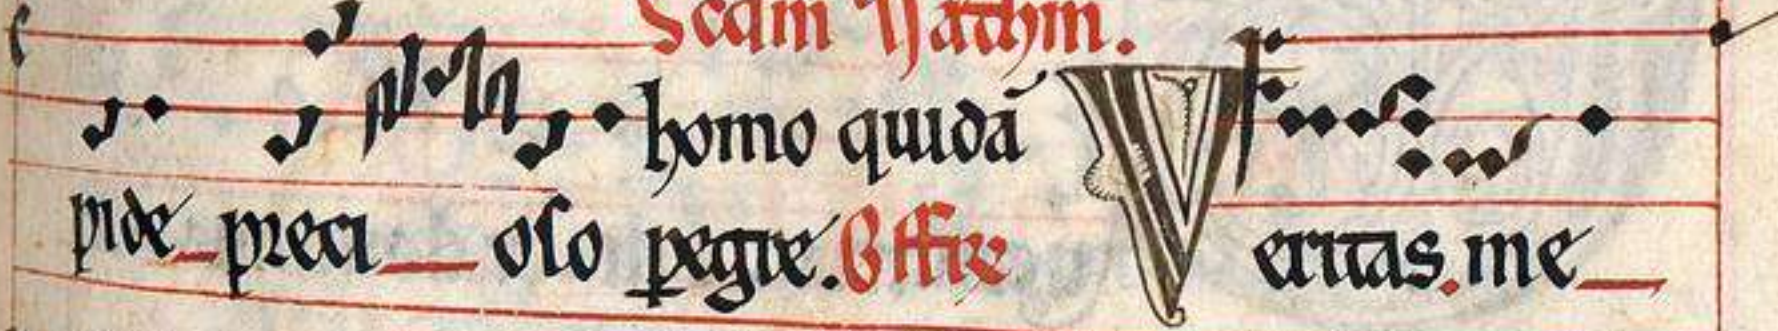 Scdm Mathm.
homo quidā
pide preci oso pegre. Offire
Veritas. me